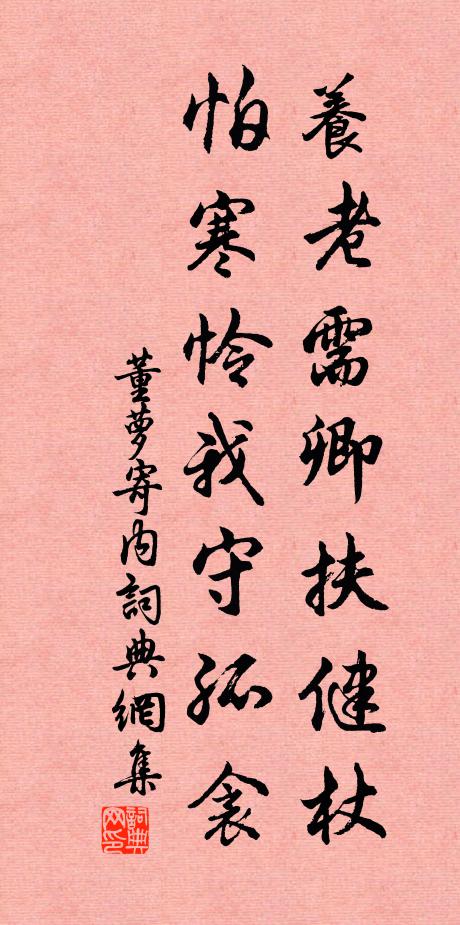 養老需卿扶健杖
怕寒怜我守孤衾
董夢寄内詞典網集
詞典网印